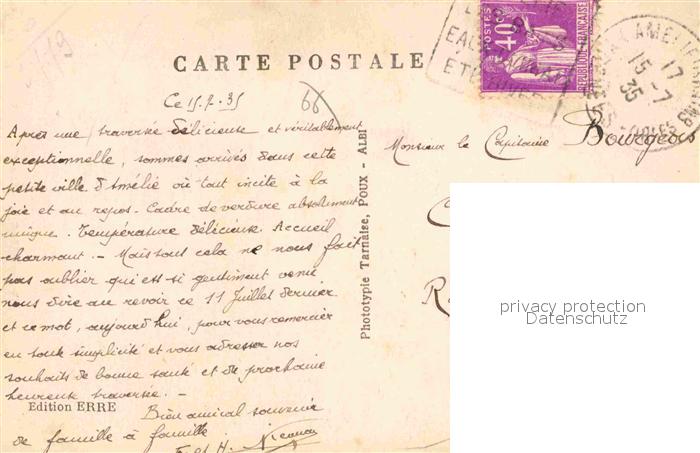 CARTE POSTALE
POSTES
40c
REPUBLIQUE FRANÇAISE
AMELIE
17
15-7
35
Ce 15.7.35
66
Après une traversée délicieuse et véritablement
exceptionnelle, sommes arrivés dans cette
petite ville d'Amélie où tout incite à la
joie et au repos. Cadre de verdure absolument
unique. Température délicieuse. Accueil
charmant. - Mais tout cela ne nous fait
pas oublier qui est si gentiment venu
nous dire au revoir ce 11 Juillet dernier
et ce mot, aujourd'hui, pour vous remercier
en toute simplicité et vous adresser nos
souhaits de bonne santé et de prochaine
heureuse traversée. -
Bien amical souvenir
de famille à famille.
Edition ERRE
Phototypie Tarnaise, POUX - ALBI
Monsieur le Capitaine Bourgeois
privacy protection
Datenschutz